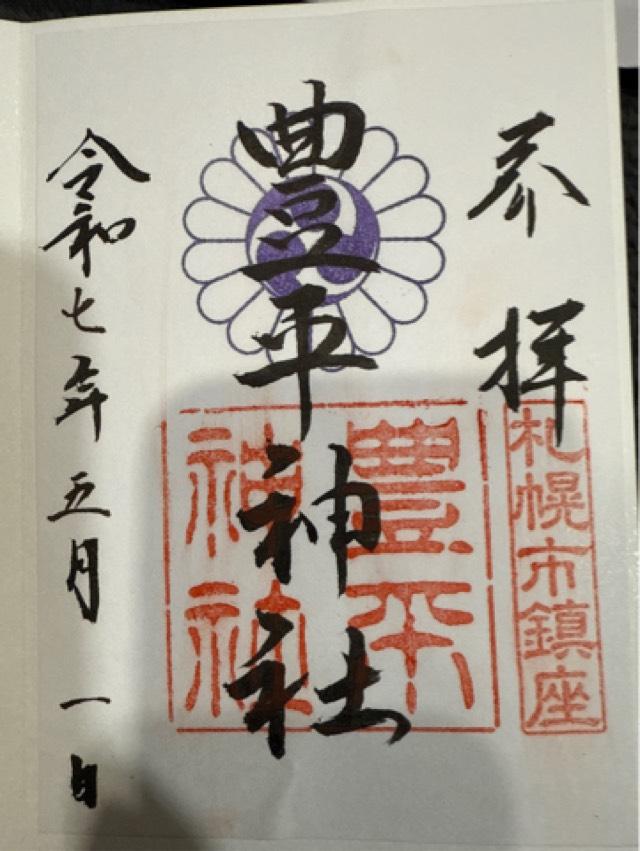 奉拝
札幌市鎮座
豊平神社
豊平
神社
令和七年五月一日